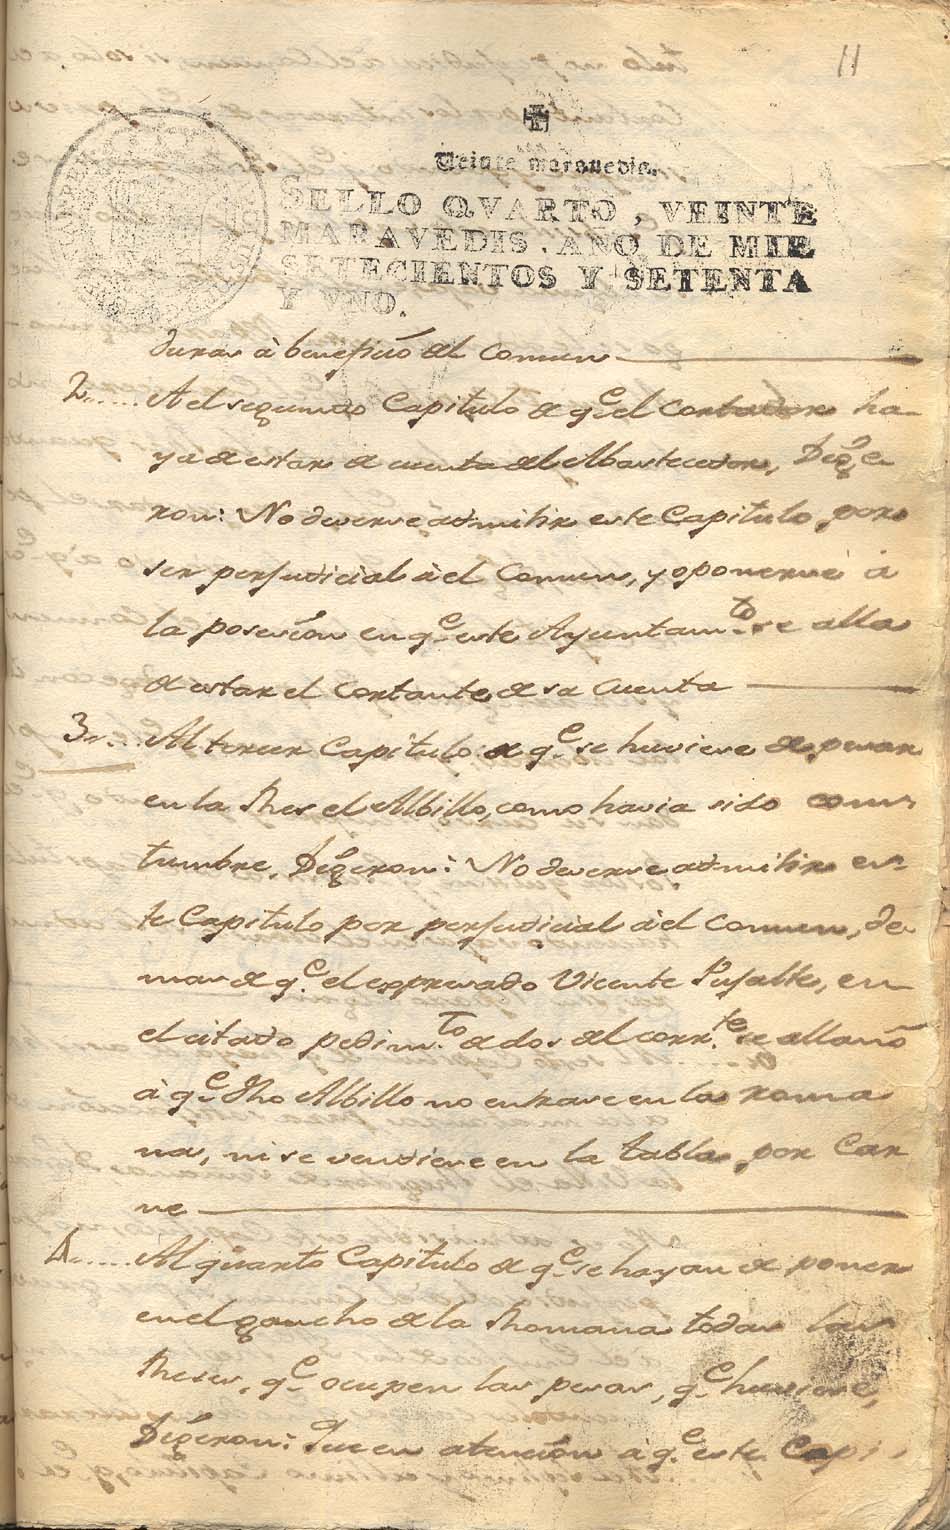 11
Veinte maravedis.
SELLO QVARTO, VEINTE
MARAVEDIS, AÑO DE MIL
SETECIENTOS Y SETENTA
Y VNO.
duras à beneficio del Comun
2..... A el segundo Capitulo de qe. el Cortador ha-
ya de estar de cuenta del Abastecedor, Digẽe-
ron: No deverse admitir este Capitulo, por
ser perjudicial à el Comun, y oponerse à
la posesion en qe. este Ayuntamto. se alla
de estar el Cortante de sa Cuenta
3..... Al tercer Capitulo de qe. se huviese de pesar
en la Res el Albillo, como havia sido cos-
tumbre, Digeron: No deverse admitir es-
te Capitulo por perjudicial à el Comun, de
mas de qe. el expresado Vicente Pujalte, en
el citado pedimto. de dos del corrte. se allanó
à qe. dho Albillo no entrase en la roma
na, ni se vendiese en la tabla, por Car
ne
4..... Al quarto Capitulo de qe. se hayan de poner
en el gancho de la Rhomana todas las
Reses, qe. ocupen las pesas, qe. huviere,
Digeron: Que en atención à qe. este Capi-